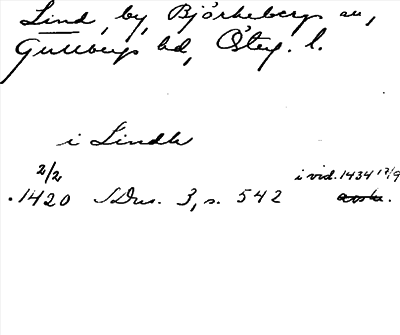 Lind, by, Björkebergs sn,
Gullbergs hd, Österg. l.
i Lindh
2/2 i vid. 1434 17/9
.1420 SDns. 3, s. 542 avskr.